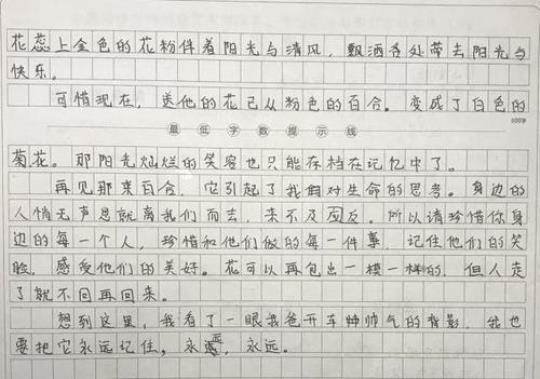 花蕊上金色的花粉伴着阳光与清风，飘洒各处带去阳光与
快乐。
可惜现在，送他的花已从粉色的百合。变成了白色的
最低字数提示线
菊花。那阳光灿烂的笑容也只能存档在记忆中了。
再见那朵百合，它引起了我们对生命的思考。身边的
人悄无声息就离我们而去，来不及回应。所以请珍惜你身
边的每一个人，珍惜和他们做的每一件事，记住他们的笑
脸，感受他们的美好。花可以再包出一模一样的，但人走
了就不回再回来。
想到这里，我看了一眼我爸开车帅帅气的背影，我也
要把它永远记住，永远，永远。